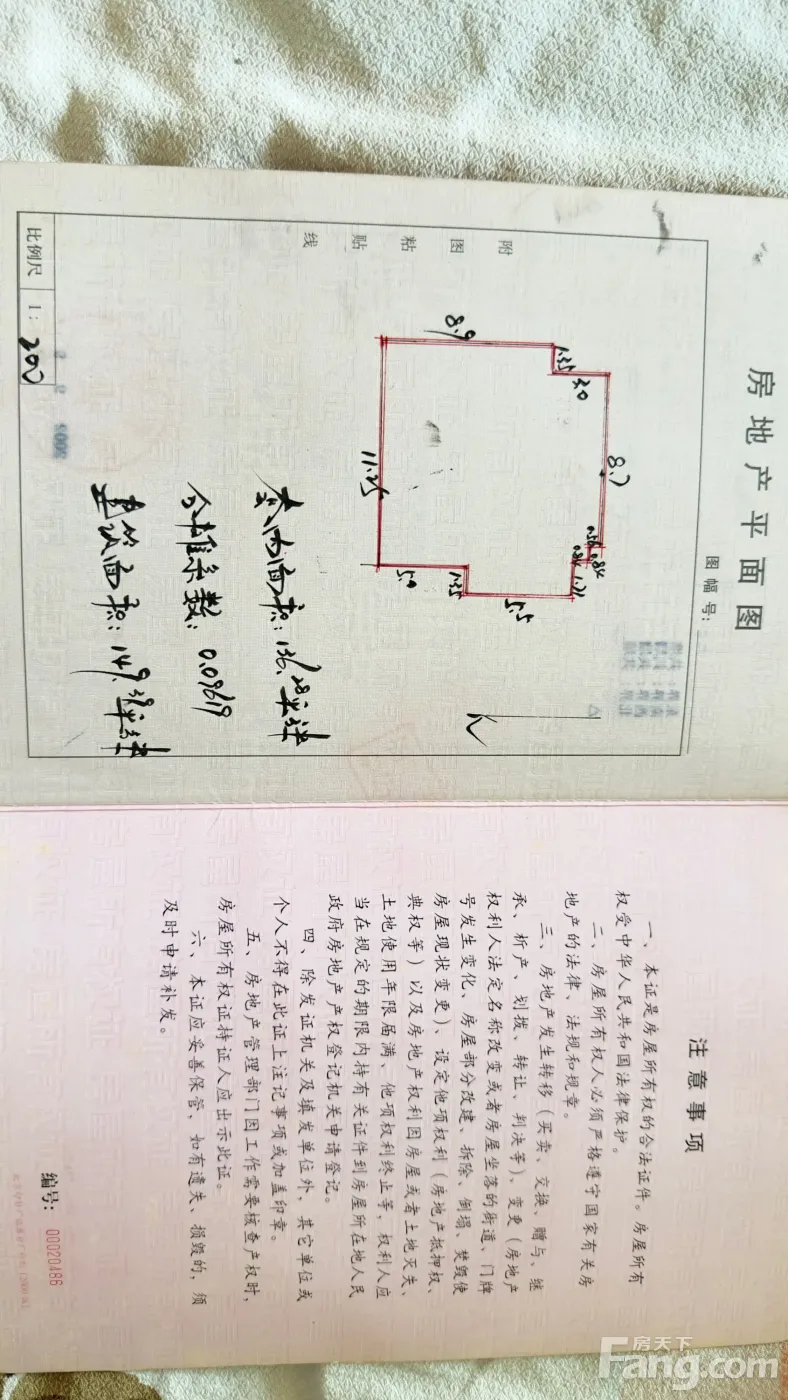 房地产平面图
图幅号:
附图粘贴线
8.9
1.35
3.0
8.7
0.56
0.84
0.84
1.21
11.25
5.0
1.35
5.5
套内面积:136.28平方米
分摊系数:0.09619
建筑面积:149.39平方米
比例尺 1:200
注意事项
一、本证是房屋所有权的合法证件。房屋所有
权受中华人民共和国法律保护。
二、房屋所有权人必须严格遵守国家有关房
地产的法律、法规和规章。
三、房地产发生转移(买卖、交换、赠与、继
承、析产、划拨、转让、判决等)、变更(房地产
权利人法定名称改变或者房屋坐落的街道、门牌
号发生变化、房屋部分改建、拆除、倒塌、焚毁使
房屋现状变更)、设定他项权利(房地产抵押权、
典权等)以及房地产权利因房屋或者土地灭失、
土地使用年限届满、他项权利终止等,权利人应
当在规定的期限内持有关证件到房屋所在地人民
政府房地产产权登记机关申请登记。
四、除发证机关及填发单位外,其它单位或
个人不得在此证上注记事项或加盖印章。
五、房地产管理部门因工作需要核查产权时,
房屋所有权证持证人应出示此证。
六、本证应妥善保管,如有遗失、损毁的,须
及时申请补发。
编号:00020486
房天下
Fang.com